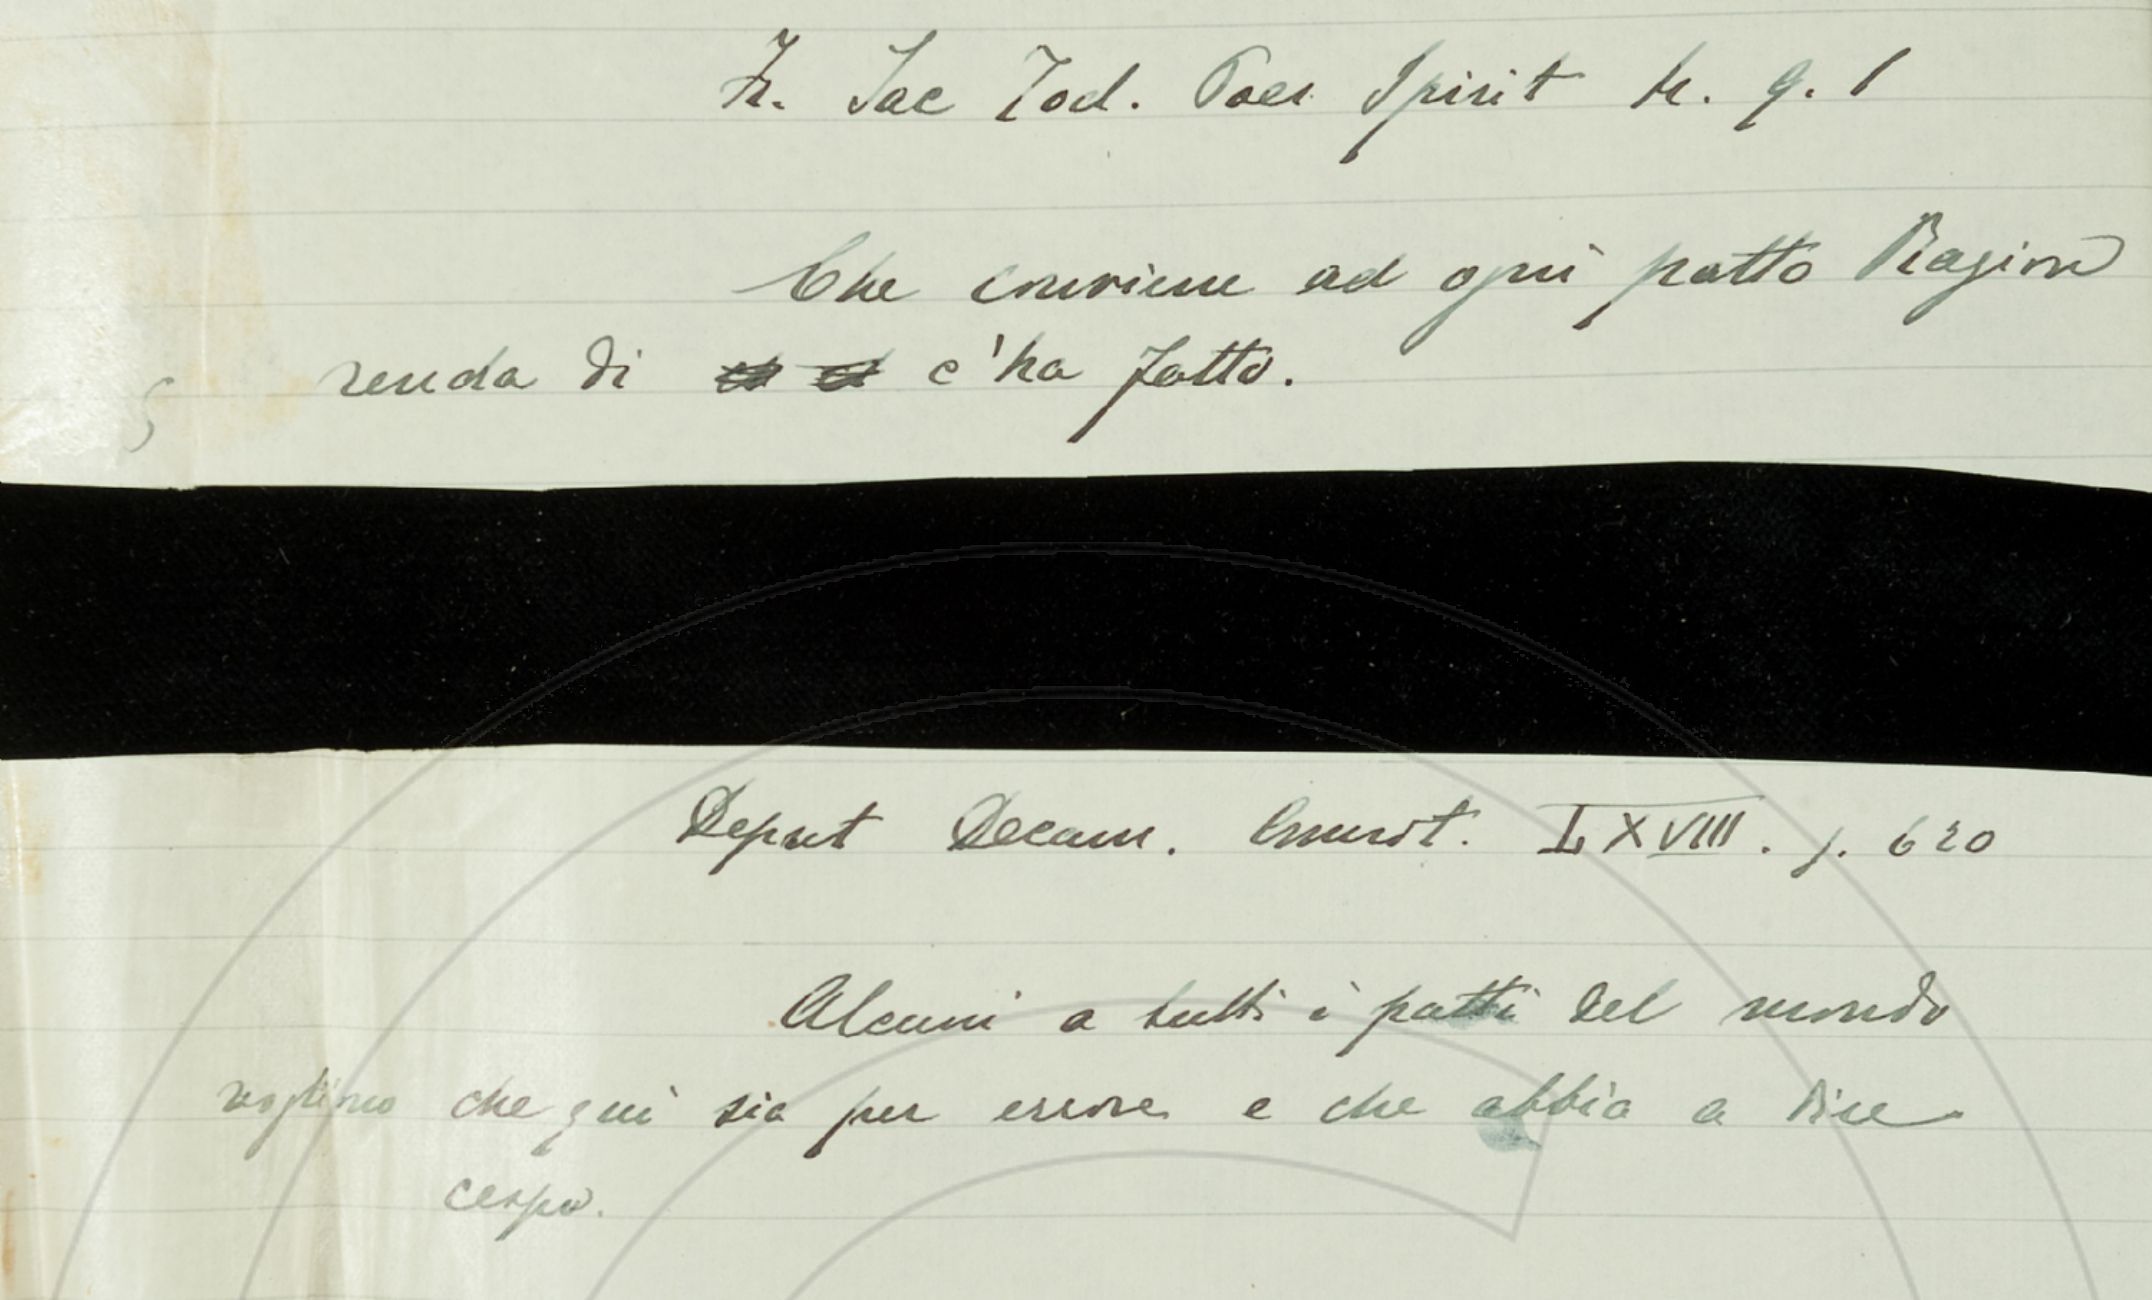 Fr. Jac Tod. Poes Spirit tr. 9. 1
Che conviene ad ogni patto Ragion
renda di c'ha fatto.
Deput Decam. Annot. LXVIII. p. 620
Alcuni a tutti i patti del mondo
vogliono che qui sia per errore e che abbia a dire
cespo.